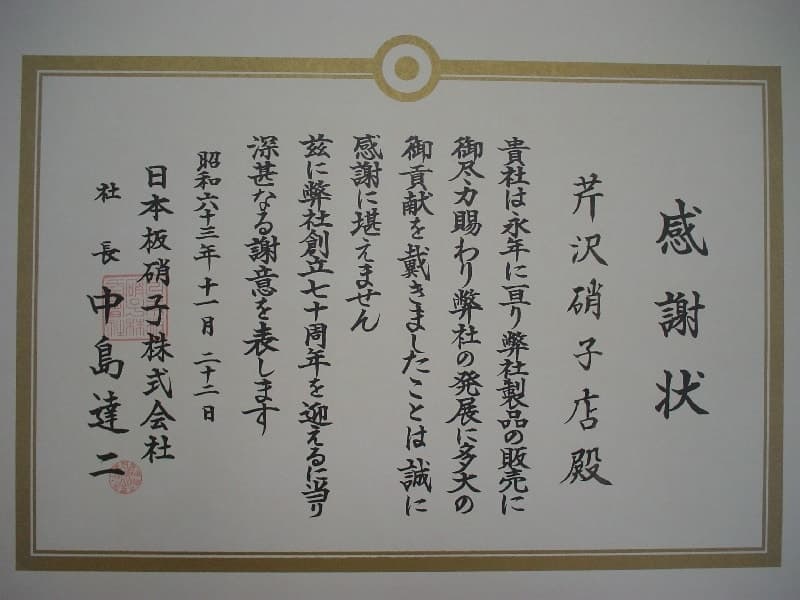 感謝状
芹沢硝子店殿
貴社は永年に亘り弊社製品の販売に
御尽力賜わり弊社の発展に多大の
御貢献を戴きましたことは誠に
感謝に堪えません
玆に弊社創立七十周年を迎えるに当り
深甚なる謝意を表します
昭和六十三年十一月二十二日
日本板硝子株式会社
社長 中島達二